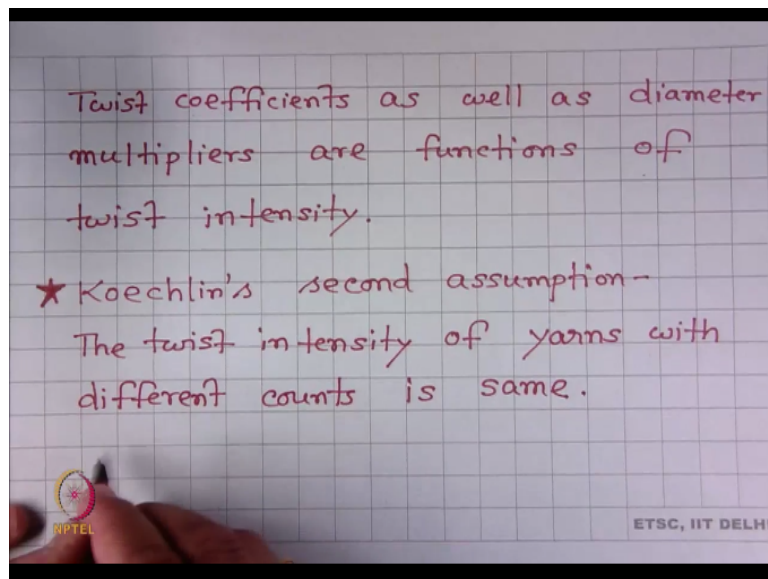 Twist coefficients as well as diameter
multipliers are functions of
twist intensity.
★ Koechlin's second assumption-
The twist intensity of yarns with
different counts is same.
NPTEL
ETSC, IIT DELHI